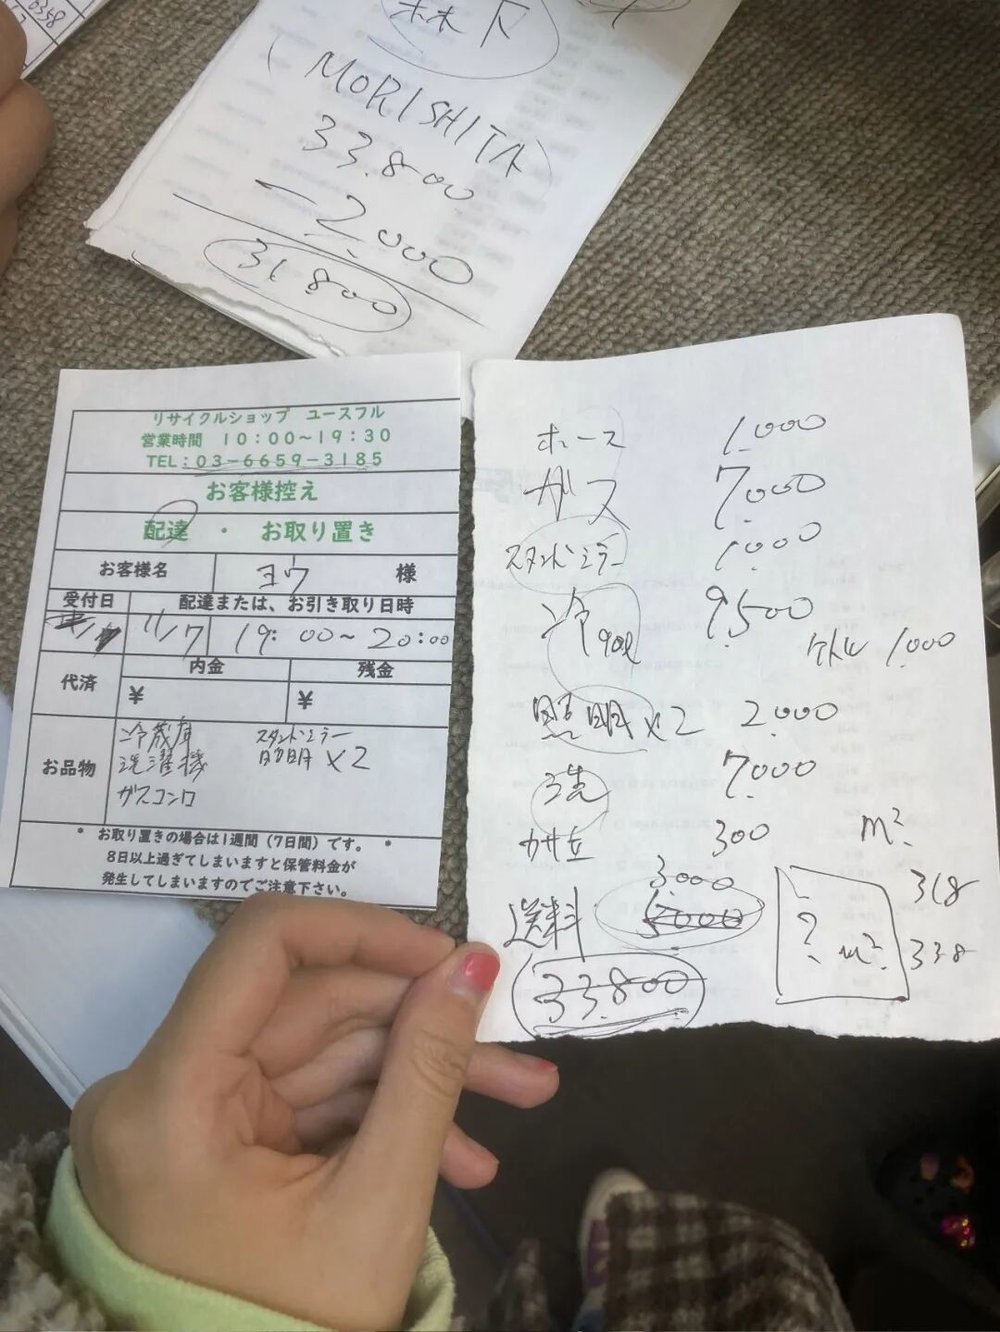 森下
(MORISHITA)
33.800
-2.000
31.800
リサイクルショップ ユースフル
営業時間 10:00～19:30
TEL:03-6659-3185
お客様控え
配達 ・ お取り置き
お客様名 ヨウ 様
受付日 配達または、お引き取り日時
11/7 19:00～20:00
代済 内金 残金
¥ ¥
お品物
冷蔵庫 スタンドミラー
洗濯機 照明×2
ガスコンロ
* お取り置きの場合は1週間（7日間）です。 *
8日以上過ぎてしまいますと保管料金が
発生してしまいますのでご注意下さい。
ホース 1.000
ガス 7.000
スタンドミラー 1.000
冷 90ℓ 9.500
ケトル 1.000
照明×2 2.000
洗 7.000
カサ立 300
m²
3.000
送料 5000
33.800
? m²
318
338
0358